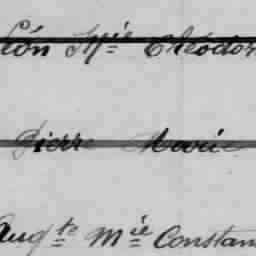 Léon Mie Théodor
Pierre Marie
Augte Mie Constan